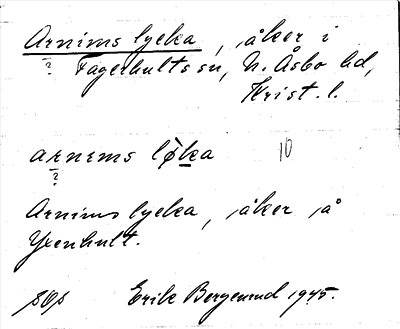 Arnims lycka, åker i
?
Fagerhults sn, N. Åsbo hd,
Krist. l.
arnıms lø̀ka 10
?
Arnims lycka, åker å
Yxenhult.
Erik Bergenrud 1945.